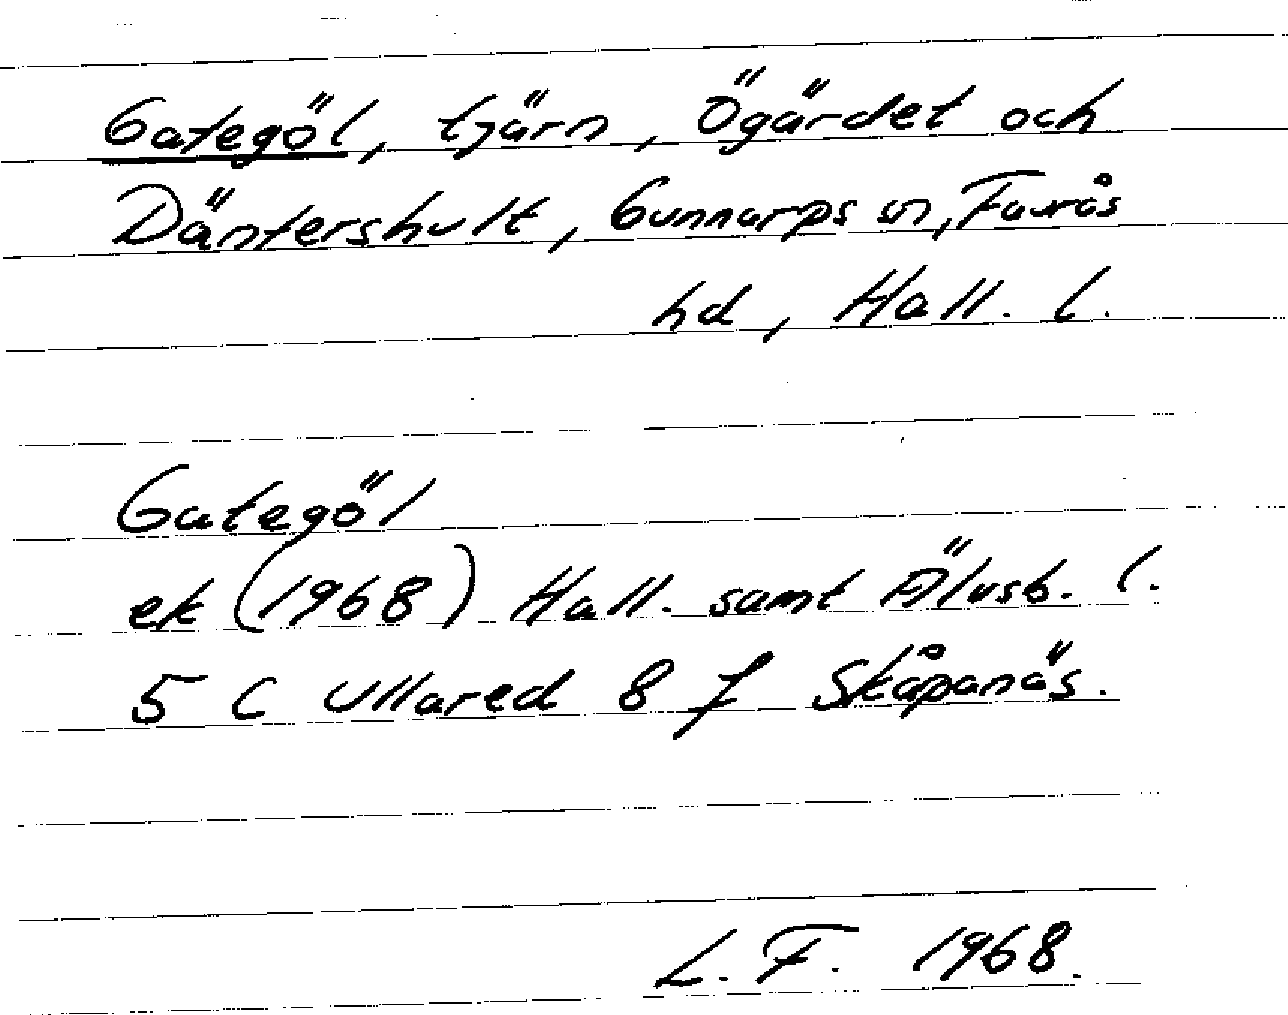 Gategöl, tjärn, Ögärdet och
Däntershult, Gunnarps sn, Faurås
hd, Hall. l.
Gategöl
ek (1968) Hall. samt Älvsb. l.
5 C Ullared 8 f Skåpanäs.
L. F. 1968.